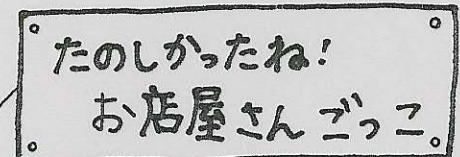 たのしかったね!
お店屋さんごっこ